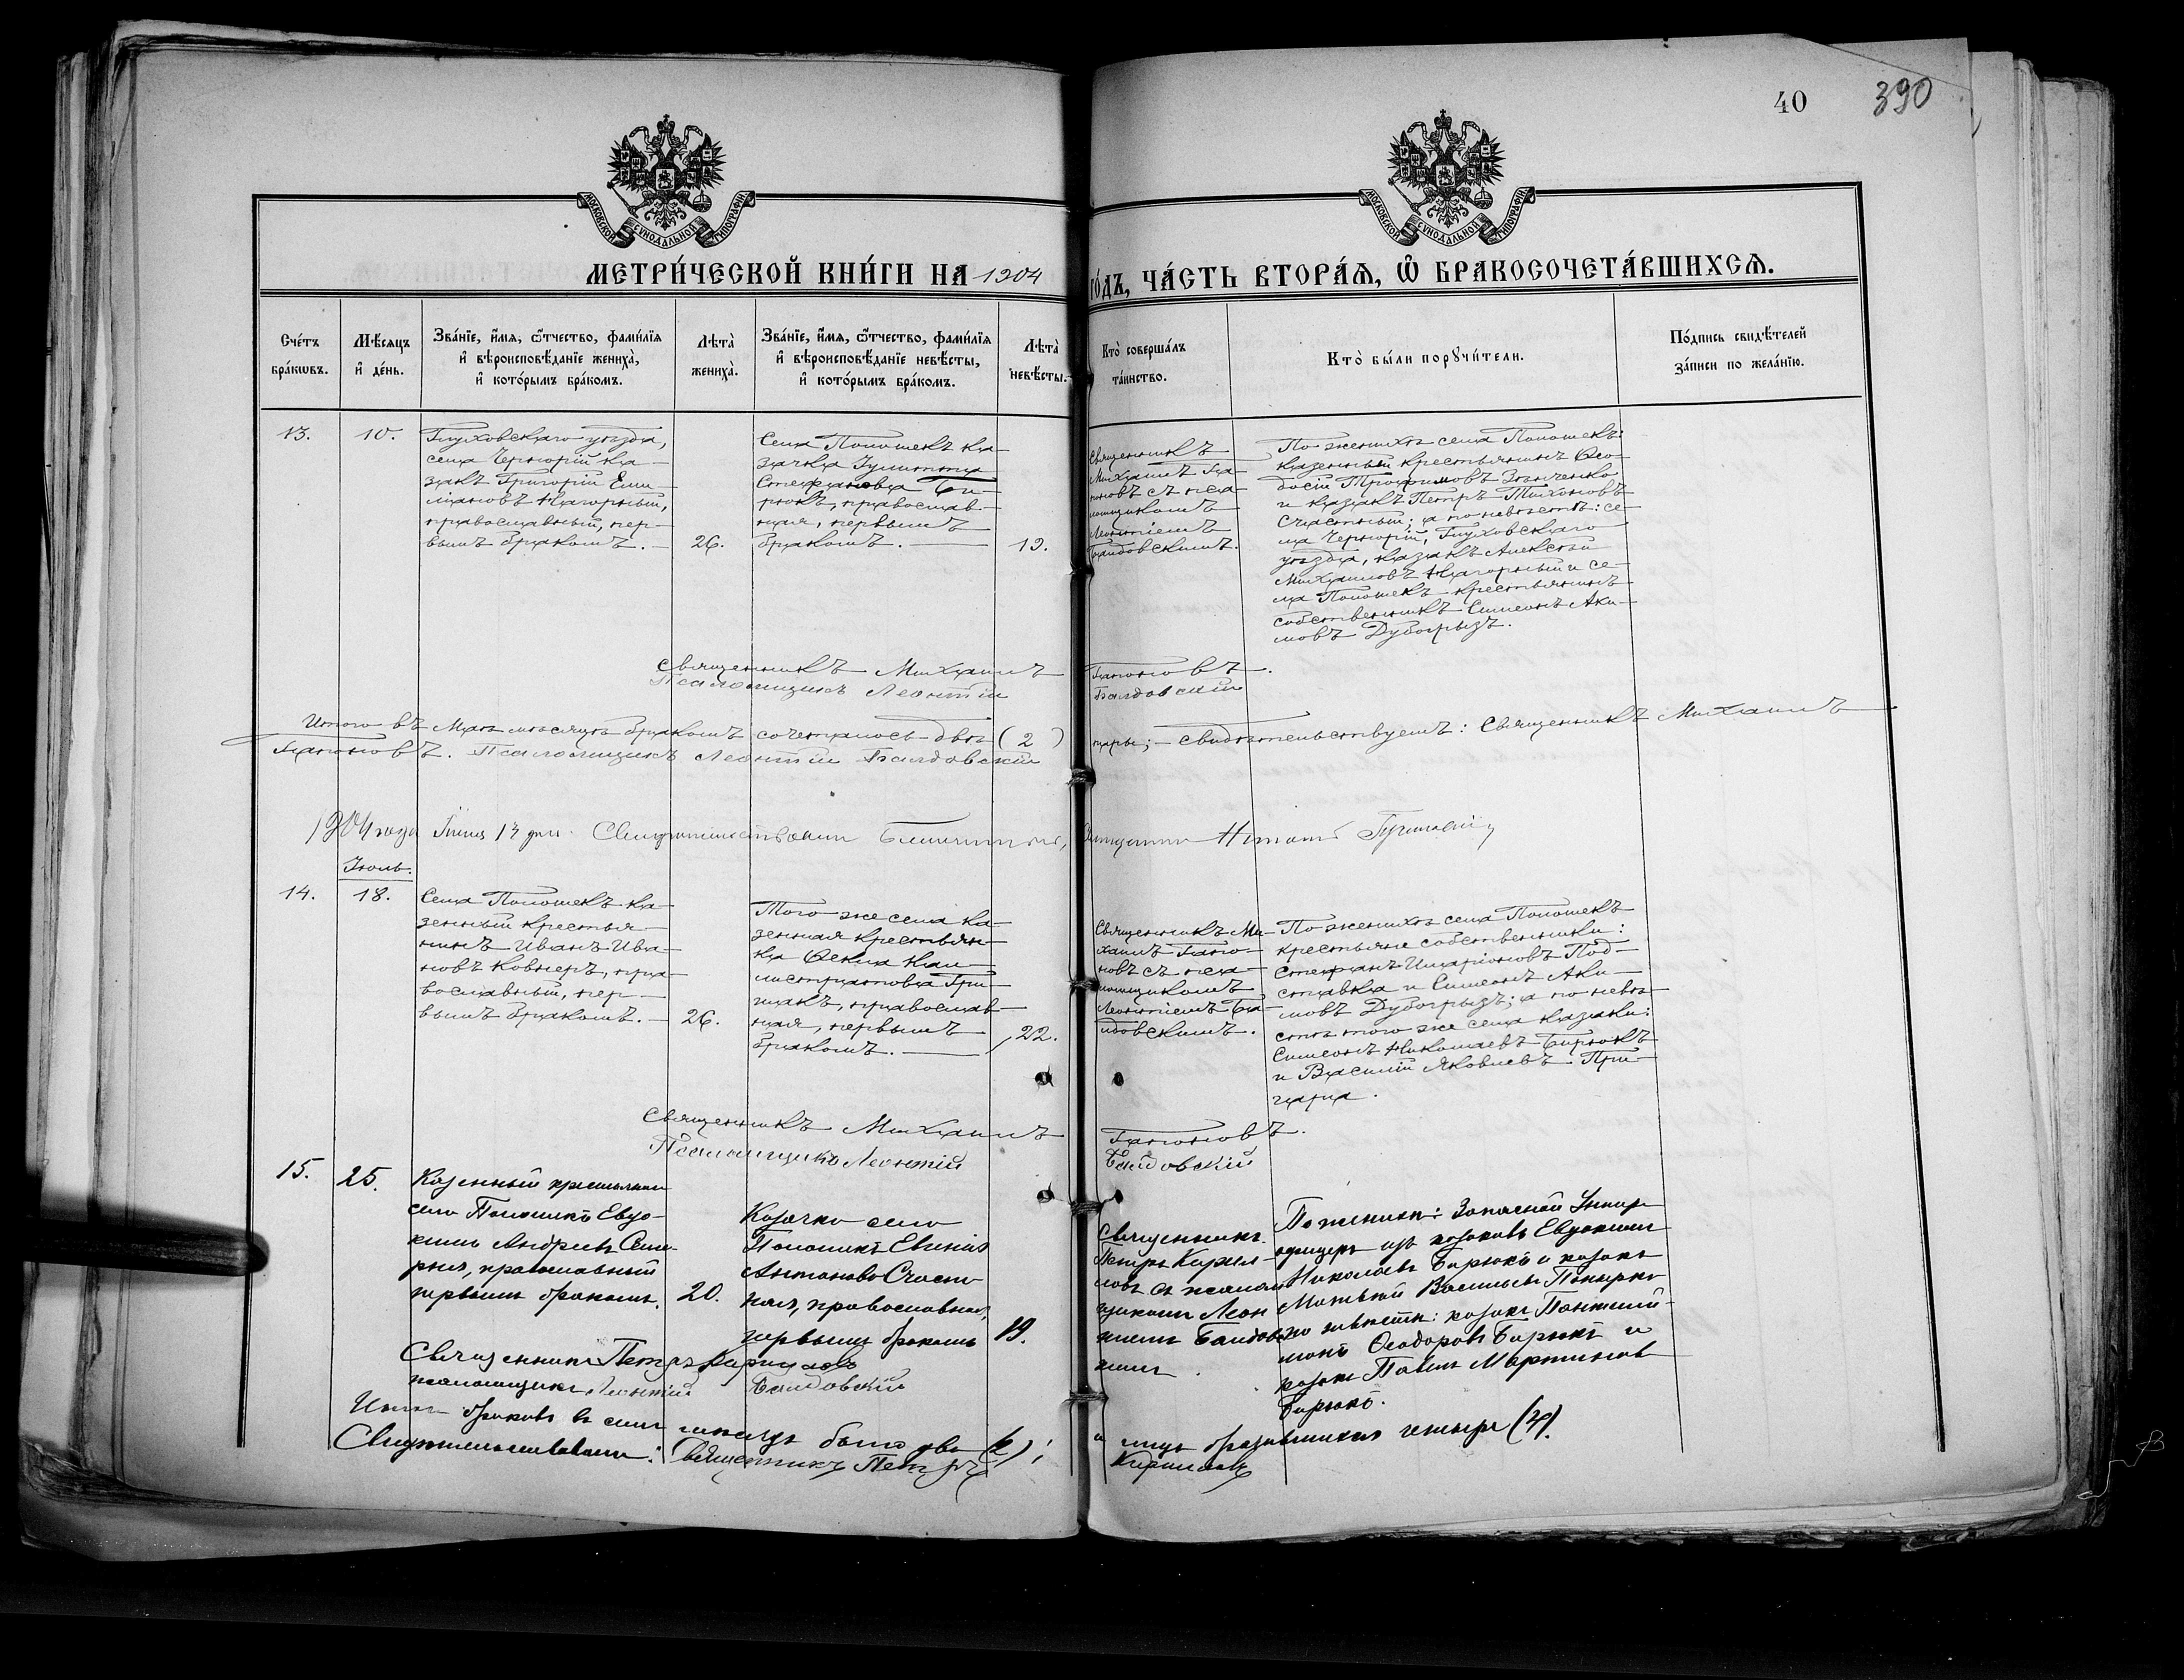 40 390
МОСКОВСКОЙ СѴНОДАЛЬНОЙ ТИПОГРАФІИ.
МОСКОВСКОЙ СѴНОДАЛЬНОЙ ТИПОГРАФІИ.
МЕТРИ́ЧЕСКОЙ КНИ́ГИ НА 1904
ГО́ДЪ, ЧА́СТЬ ВТОРА́Ѧ, Ѽ БРАКОСОЧЕТА́ВШИХСѦ.
Сче́тъ
бра́кѡвъ.
Мѣ́сяцъ
и҆ де́нь.
Зва́нїе, и҆́мѧ, ѻ҆́тчество, фами́лїѧ
и҆ вѣроисповѣ́данїе жениха̀,
и҆ кото́рымъ бра́комъ.
Лѣ́та̀
жениха̀.
Зва́нїе, и҆́мѧ, ѻ҆́тчество, фами́лїѧ
и҆ вѣроисповѣ́данїе невѣ́сты,
и҆ кото́рымъ бра́комъ.
Лѣ́та̀
невѣ́сты.
Кто̀ соверша́лъ
та́инство.
Кто̀ бы́ли порꙋчи́тели.
По́дпись свидѣ́телей
за́писи по жела́нїю.
13.
10.
Глуховскаго уѣзда,
села Черторій ка-
закъ Григорій Еми-
ліановъ Нагорный,
православный, пер-
вымъ бракомъ.
26.
Села Полошекъ ка-
зачка Іулитта
Стефанова Би-
рюкъ, православ-
ная, первымъ
бракомъ.
19.
Священникъ
Михаилъ Га-
поновъ съ пса-
ломщикомъ
Леонтіемъ
Балдовскимъ.
По женихѣ села Полошекъ:
казенный крестьянинъ Ѳео-
досій Трофимовъ Зѣнченко
и казакъ Петръ Тихоновъ
Счастный; а по невѣстѣ: се-
ла Черторій, Глуховскаго
уѣзда, казакъ Алексѣй
Михаиловъ Нагорный и се-
ла Полошекъ крестьянинъ
собственникъ Симеонъ Аки-
мовъ Дубогрызъ.
Священникъ Михаилъ Гапоновъ.
Псаломщикъ Леонтій Балдовскій
Итого въ Маѣ мѣсяцѣ бракомъ сочеталось двѣ (2) пары; свидѣтельствуемъ: Священникъ Михаилъ
Гапоновъ. Псаломщикъ Леонтій Балдовскій
1904 года 13 дня
Іюль.
14.
18.
Села Полошекъ ка-
зенный крестья-
нинъ Иванъ Ива-
новъ Ковнеръ, пра-
вославный, пер-
вымъ бракомъ.
26.
Того же села ка-
зенная крестьян-
ка Ѳекла Кали-
стратова Гри-
щакъ, православ-
ная, первымъ
бракомъ.
22.
Священникъ Ми-
хаилъ Гапо-
новъ съ пса-
ломщикомъ
Леонтіемъ Ба-
лдовскимъ.
По женихѣ села Полошекъ
крестьяне собственники:
Стефанъ Иларіоновъ Под-
ставка и Симеонъ Аки-
мовъ Дубогрызъ; а по невѣ-
стѣ того же села казаки:
Симеонъ Николаевъ Бирюкъ
и Василій Яковлевъ При-
щепа.
Священникъ Михаилъ Гапоновъ.
Псаломщикъ Леонтій Балдовскій
15.
25.
Казенный крестьянинъ
села Полошекъ Евдо-
кимъ Андреевъ
православный
первымъ бракомъ.
20.
Козачка села
Полошекъ Евгенія
Антонова Счаст-
ная, православная,
первымъ бракомъ
19.
Священникъ
Петръ Кирил-
ловъ съ псалом-
щикомъ Леон-
тіемъ Балдовс-
кимъ.
По женихѣ: Запасной Унтеръ
офицеръ изъ козаковъ Евдокимъ
Николаевъ Бирюкъ и козакъ
Матвѣй Васильевъ
по невѣстѣ: козакъ Пантелей-
монъ Ѳеодоровъ Бирюкъ и
козакъ Павелъ Мартиновъ
Бирюкъ.
Священникъ Петръ Кирилловъ
псаломщикъ Леонтій Балдовскій
Итого браковъ въ семъ мѣсяцѣ было два (2); а лицъ бракъ четыре (4).
Священникъ Петръ Кирилловъ